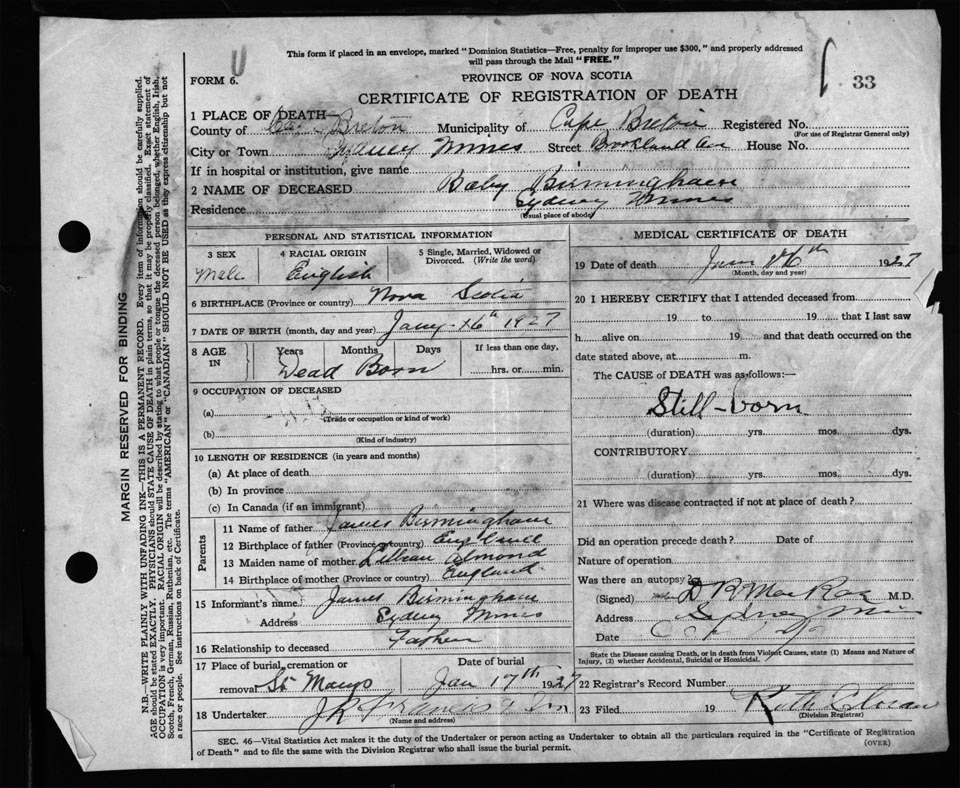 This form if placed in an envelope, marked "Dominion Statistics—Free, penalty for improper use $300," and properly addressed
will pass through the Mail "FREE."
FORM 6.
PROVINCE OF NOVA SCOTIA
33
CERTIFICATE OF REGISTRATION OF DEATH
1 PLACE OF DEATH—
County of Cape Breton Municipality of Cape Breton Registered No.
(For use of Registrar General only)
City or Town Sydney Mines Street Brookland Av House No.
If in hospital or institution, give name
2 NAME OF DECEASED Baby Birmingham
Residence Sydney Mines
(Usual place of abode)
PERSONAL AND STATISTICAL INFORMATION
3 SEX 4 RACIAL ORIGIN 5 Single, Married, Widowed or
Divorced. (Write the word)
Male English
6 BIRTHPLACE (Province or country) Nova Scotia
7 DATE OF BIRTH (month, day and year) Jany 16th 1927
8 AGE IN Years Months Days If less than one day,
hrs. or min.
Dead Born
9 OCCUPATION OF DECEASED
(a)
(Trade or occupation or kind of work)
(b)
(Kind of industry)
10 LENGTH OF RESIDENCE (in years and months)
(a) At place of death
(b) In province
(c) In Canada (if an immigrant)
Parents
11 Name of father James Birmingham
12 Birthplace of father (Province or country) England
13 Maiden name of mother Lillian Almond
14 Birthplace of mother (Province or country) England
15 Informant's name James Birmingham
Address Sydney Mines
16 Relationship to deceased Father
17 Place of burial, cremation or Date of burial
removal St Marys Jan 17th 1927
18 Undertaker J R Francis & Son
(Name and address)
MEDICAL CERTIFICATE OF DEATH
19 Date of death 16th 1927
(Month, day and year)
20 I HEREBY CERTIFY that I attended deceased from
19 to 19 that I last saw
h alive on 19 and that death occurred on the
date stated above, at m.
The CAUSE of DEATH was as follows:—
Still-born
(duration) yrs. mos. dys.
CONTRIBUTORY
(duration) yrs. mos. dys.
21 Where was disease contracted if not at place of death?
Did an operation precede death? Date of
Nature of operation
Was there an autopsy?
(Signed) M.D.
Address Sydney Mines
Date
State the Disease causing Death, or in death from Violent Causes, state (1) Means and Nature of
Injury, (2) whether Accidental, Suicidal or Homicidal.
22 Registrar's Record Number
23 Filed 19
(Division Registrar)
SEC. 46—Vital Statistics Act makes it the duty of the Undertaker or person acting as Undertaker to obtain all the particulars required in the "Certificate of Registration
of Death" and to file the same with the Division Registrar who shall issue the burial permit.
(OVER)
MARGIN RESERVED FOR BINDING
N.B.—WRITE PLAINLY WITH UNFADING INK—THIS IS A PERMANENT RECORD. Every item of information should be carefully supplied.
AGE should be stated EXACTLY. PHYSICIANS should STATE CAUSE OF DEATH in plain terms, so that it may be properly classified. Exact statement of
OCCUPATION is very important. RACIAL ORIGIN will be described by stating to what people or tongue the deceased person belonged, whether English, Irish,
Scotch, French, German, Russian, Ruthenian, etc. The terms "AMERICAN" or "CANADIAN" SHOULD NOT BE USED as they express citizenship but not
a race or people. See instructions on back of Certificate.